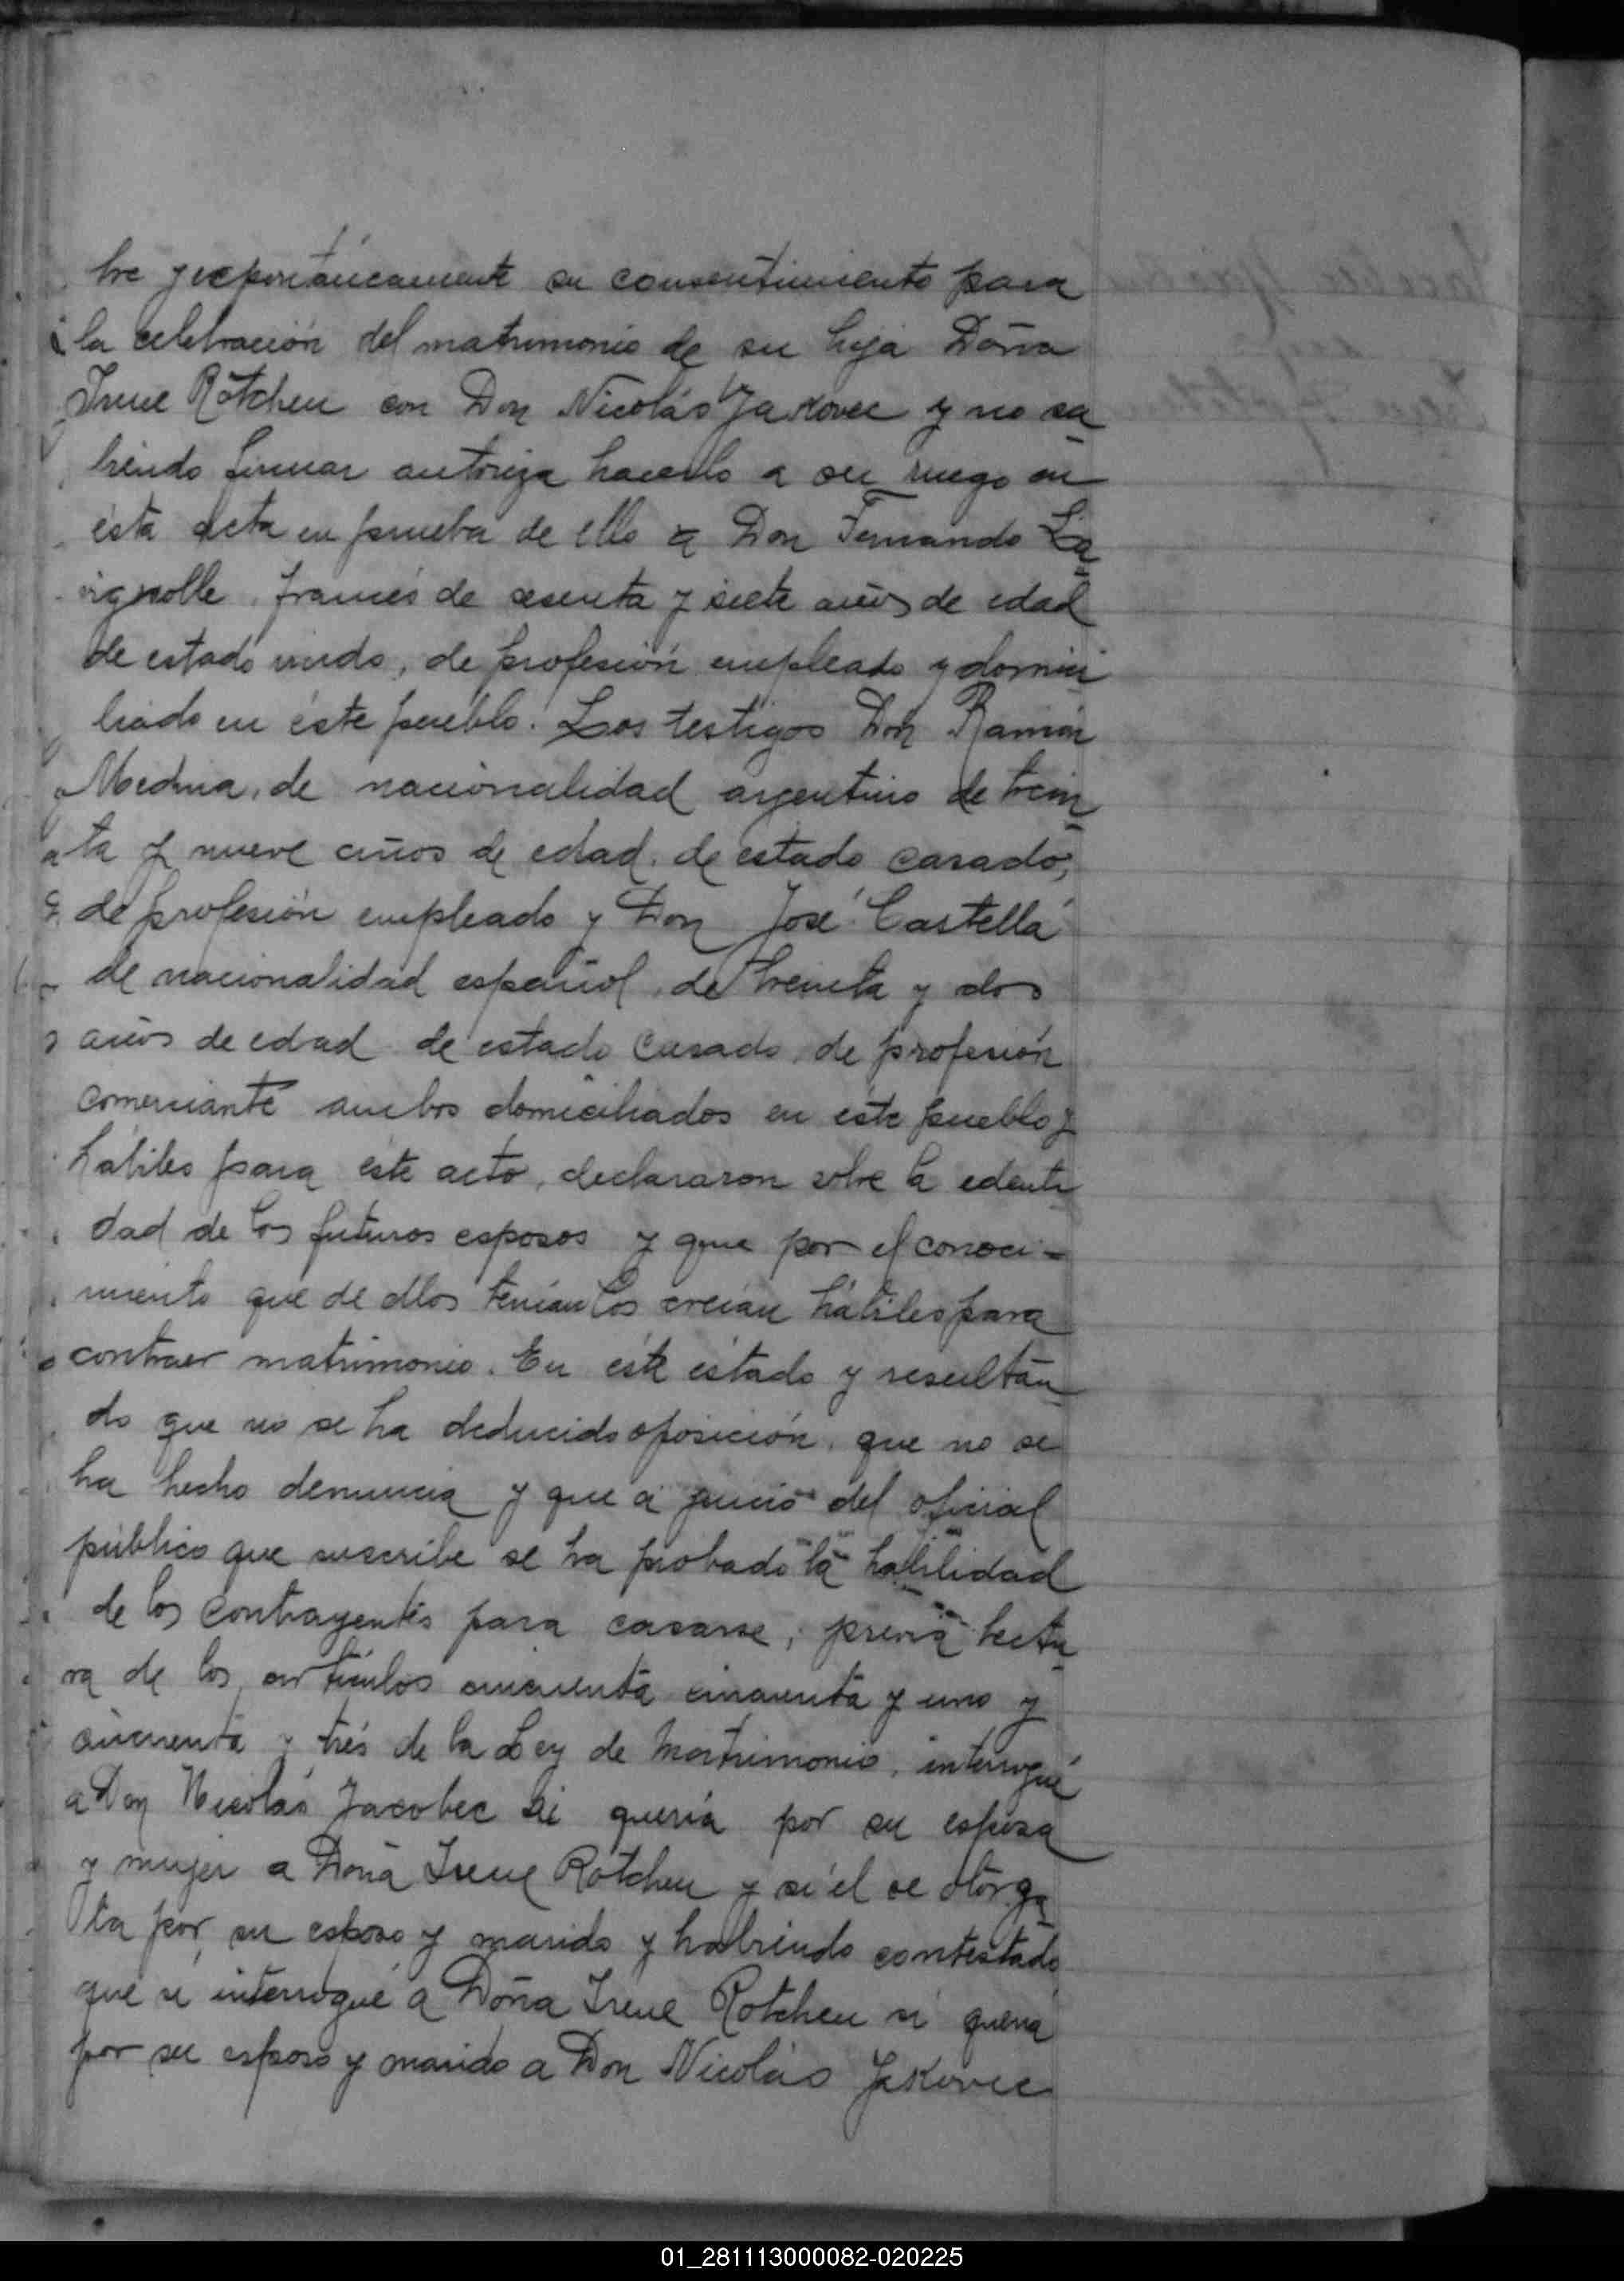 bre y expontáneamente su consentimiento para
la celebración del matrimonio de su hija Doña
Irene Rotchen con Don Nicolás Jakovec y no sa
biendo firmar autoriza hacerlo a su ruego en
ésta acta en prueba de ello a Don Fernando La
vignolle, francés de sesenta y siete años de edad
de estado viudo, de profesión empleado y domici
liado en éste pueblo. Los testigos Don Ramón
Medina, de nacionalidad argentino de trein
ta y nueve años de edad, de estado casado,
de profesión empleado y Don José Castellá
de nacionalidad español, de treinta y dos
años de edad de estado casado, de profesión
comerciante ambos domiciliados en éste pueblo y
hábiles para éste acto, declararon sobre la edenti
dad de los futuros esposos y que por el conoci-
miento que de ellos tenían los creían hábiles para
contraer matrimonio. En éste estado y resultan
do que no se ha deducido oposición, que no se
ha hecho denuncia y que a juicio del oficial
público que suscribe se ha probado la habilidad
de los contrayentes para casarse, previa lectu
ra de los artículos cincuenta cincuenta y uno y
cincuenta y trés de la Ley de Matrimonio, interrogué
a Don Nicolás Jacobec si quería por su esposa
y mujer a Doña Irene Rotchen y si él se otorga
ba por su esposo y marido y habiendo contestado
que si interrogué a Doña Irene Rotchen si quería
por su esposo y marido a Don Nicolás Jakovec
01_281113000082-020225